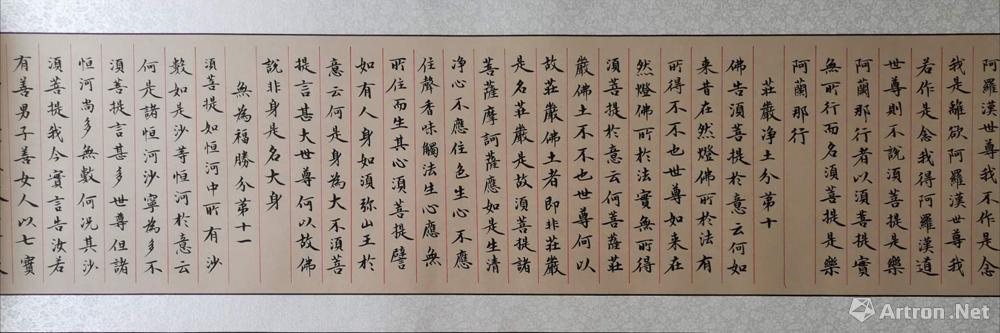 阿羅漢世尊我不作是念
我是離欲阿羅漢世尊我
若作是念我得阿羅漢道
世尊則不說須菩提是樂
阿蘭那行者以須菩提實
無所行而名須菩提是樂
阿蘭那行
莊嚴淨土分第十
佛告須菩提於意云何如
來昔在然燈佛所於法有
所得不不也世尊如来在
然燈佛所於法實無所得
須菩提於意云何菩薩莊
嚴佛土不不也世尊何以
故莊嚴佛土者即非莊嚴
是名莊嚴是故須菩提諸
菩薩摩訶薩應如是生清
净心不應住色生心不應
住聲香味觸法生心應無
所住而生其心須菩提譬
如有人身如須弥山王於
意云何是身為大不須菩
提言甚大世尊何以故佛
說非身是名大身
無為福勝分第十一
須菩提如恒河中所有沙
數如是沙等恒河於意云
何是諸恒河沙寧為多不
須菩提言甚多世尊但諸
恒河尚多無數何况其沙
須菩提我今實言告汝若
有善男子善女人以七寶
Artron.Net